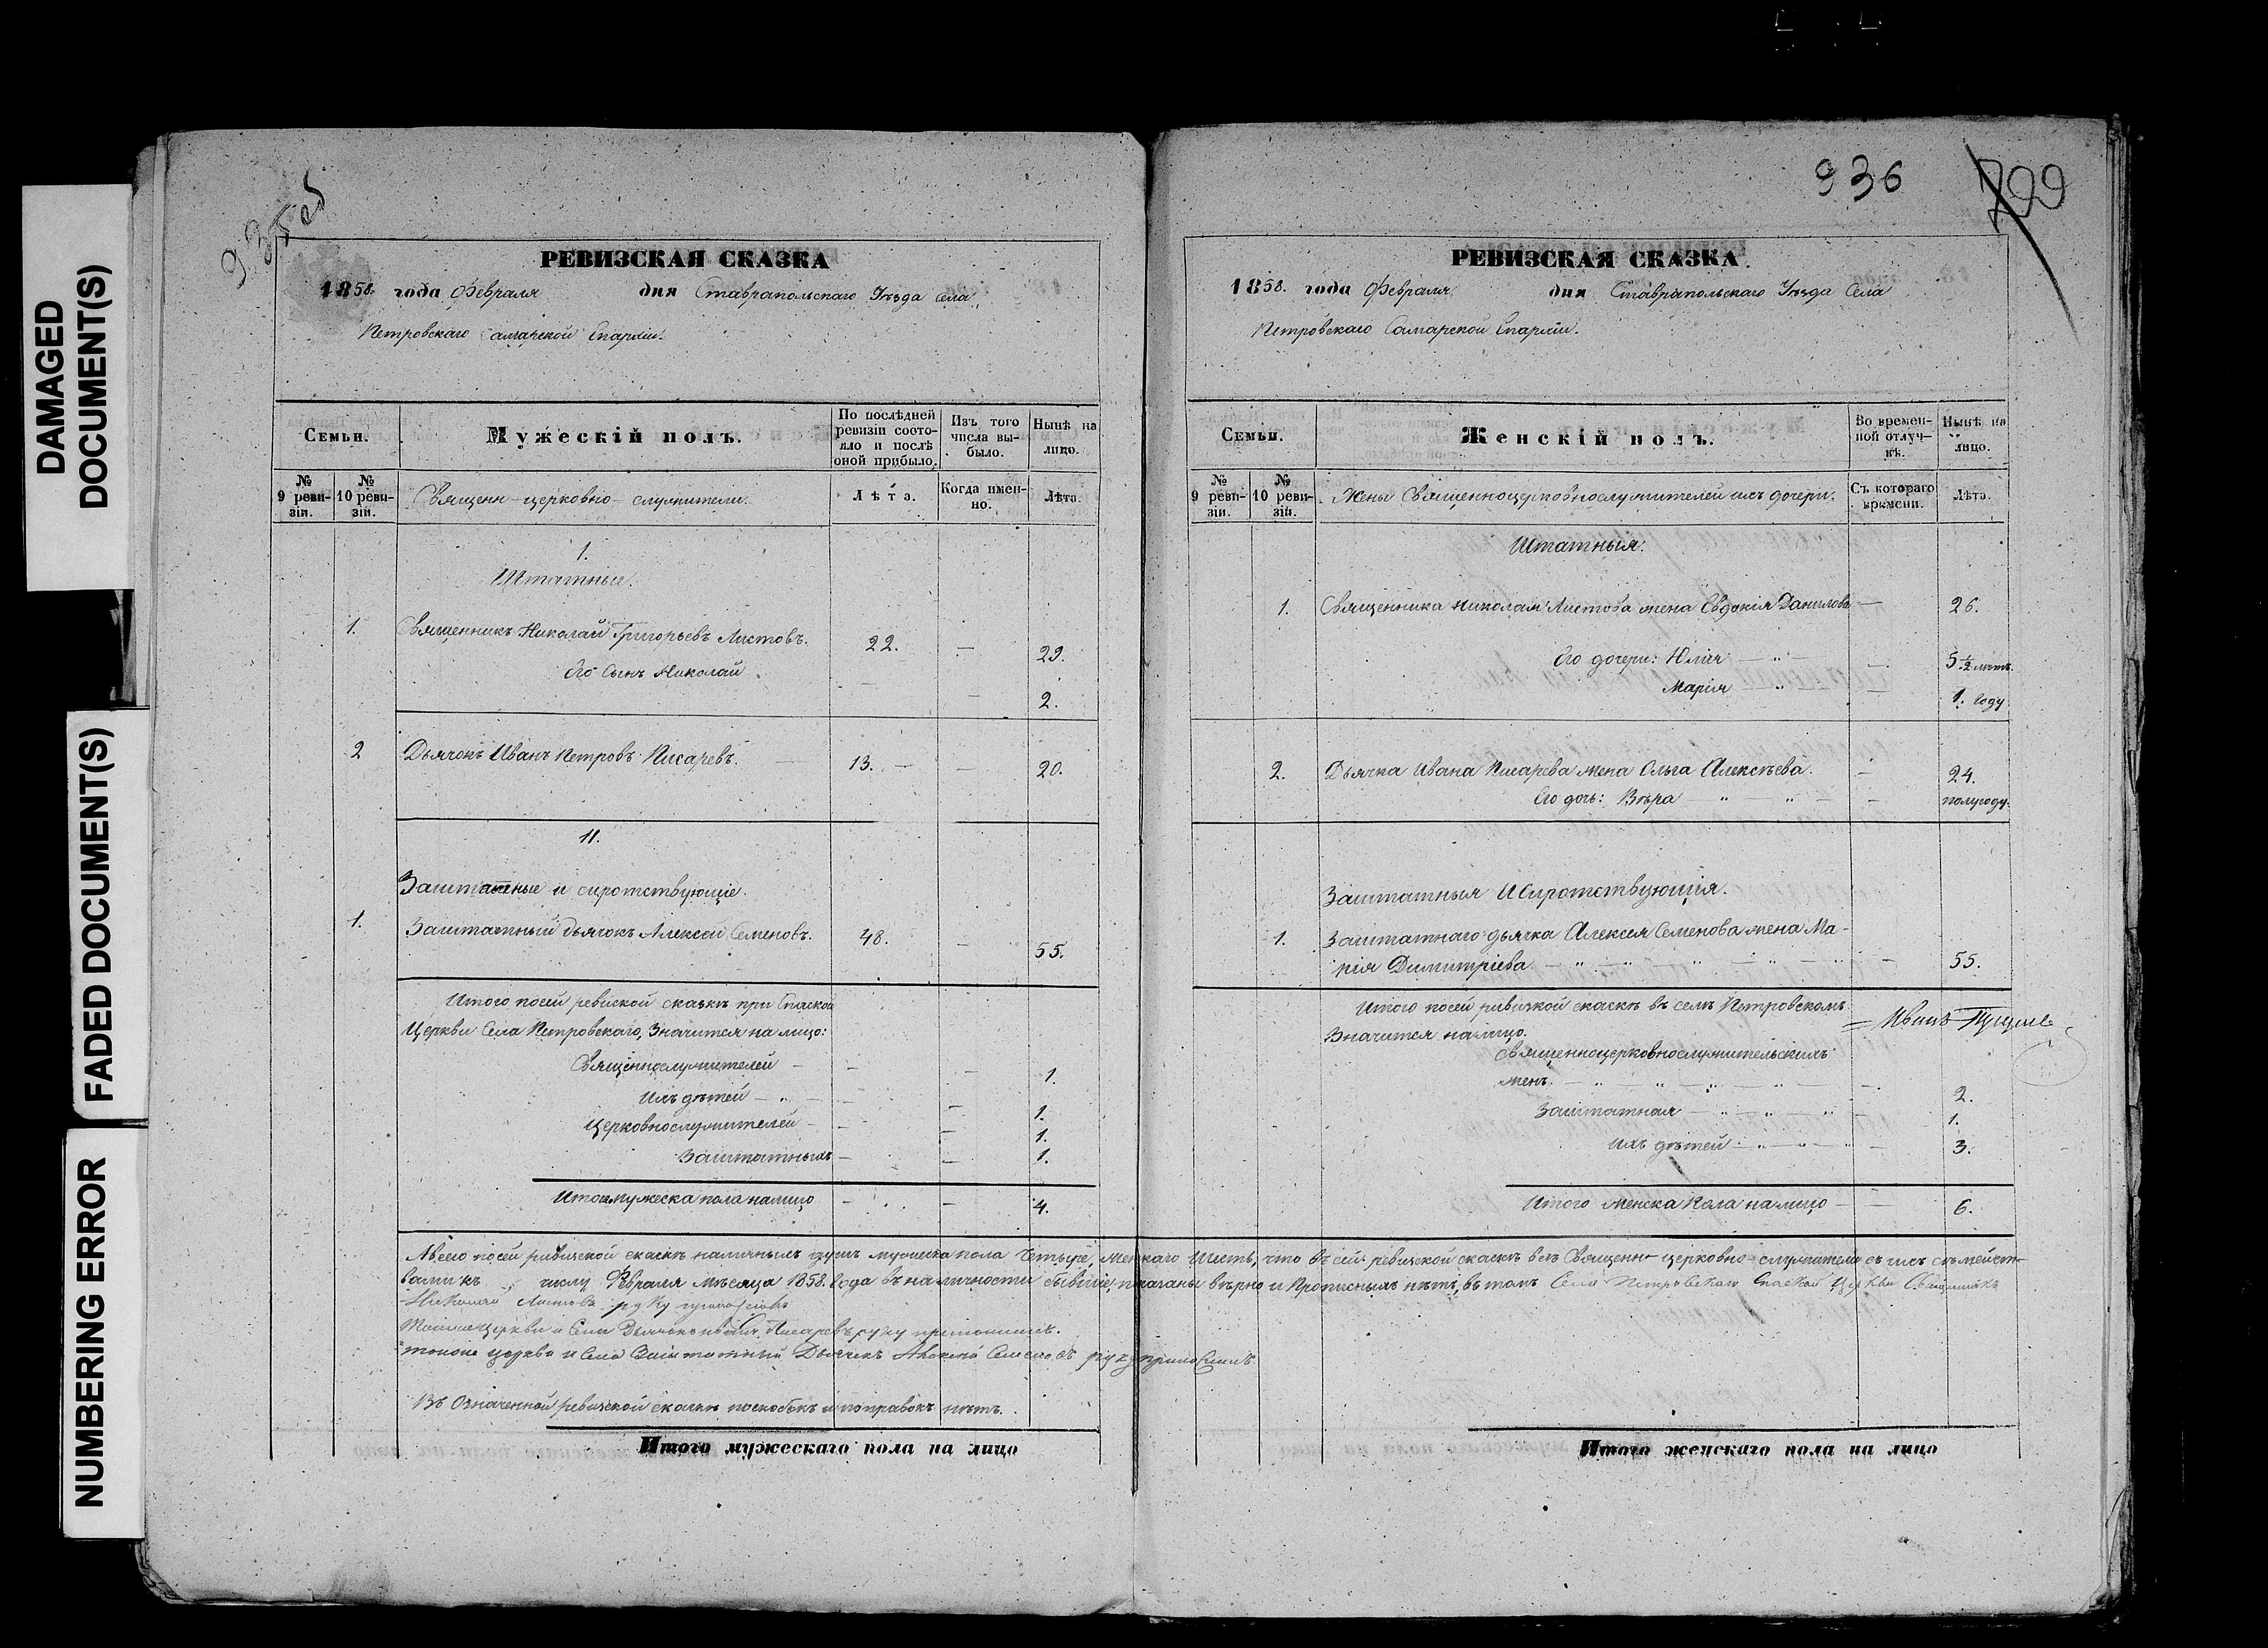 DAMAGED
DOCUMENT(S)
FADED DOCUMENT(S)
NUMBERING ERROR
РЕВИЗСКАЯ СКАЗКА
1858. года Февраля дня Ставрапольскаго Уѣзда Села
Петровскаго Самарской Епархіи.
Семьи.
Мужескій полъ.
По послѣдней
ревизіи состо-
яло и послѣ
оной прибыло.
Изъ того
числа вы-
было.
Нынѣ на
лицо.
№
9 реви-
зіи.
№
10 реви-
зіи.
Священн-церковно-служители.
Лѣта.
Когда имен-
но.
Лѣта.
1.
Штатные.
1. Священникъ Николай Григорьевъ Листовъ. 22. — 29.
Его Сынъ Николай — — 2.
2 Дьячокъ Иванъ Петровъ Писаревъ. 13. — — 20.
11.
Заштатные и сиротствующіе.
1. Заштатный дьячокъ Алексей Семеновъ. 48. — 55.
Итого посей ревиской сказкѣ при Спаской
Церкви Села Петровскаго, Значится на лицо:
Священнослужителей — — — 1.
Ихъ дѣтей — „ — — — 1.
Церковнослужителей — — — 1.
Заштатныхъ — — 1.
Итого мужеска пола налицо — — 4.
936
799
РЕВИЗСКАЯ СКАЗКА.
1858. года Февраля дня Ставрапольскаго Уѣзда Села
Петровскаго Самарской Епархіи.
Семьи.
Женскій полъ.
Во времен-
ной отлуч-
кѣ.
Нынѣ на
лицо.
№
9 реви-
зіи.
№
10 реви-
зіи.
Жены Священноцерковнослужителей ихъ дочери.
Съ котораго
времени.
Лѣта.
Штатныя.
1. Священника Николая Листова жена Евдокія Данилова — 26.
Его дочери: Юлія — „ — — 5 ½ лѣтъ.
Марія — „ — 1. году
2. Дьячка Ивана Писарева жена Ольга Алексѣева. — 24.
Его дочь: Вѣра — „ — „ — — полугоду.
Заштатныя и Сиротствующія.
1. Заштатнаго дьячка Алексея Семенова жена Ма-
рія Димитріева — „ — „ — „ — „ — „ — 55.
Итого посей ревизкой скаскѣ въ селѣ Петровскомъ
Значится налицо:
Священноцерковнослужительскихъ
женъ. — „ — „ — „ — „ — 2.
Заштатная — „ — „ — „ — 1.
Ихъ дѣтей — „ — „ — „ — 3.
Итого женска пола налицо — — 6.
А всего посей ревизской скаскѣ наличныхъ душъ мужеска пола Четыре, женскаго Шесть, что въ сей ревизской скаскѣ всѣ Священно-церковно-служители съ ихъ сѣмейст-
вами къ числу Февраля мѣсяца 1858. Года въ наличности бывшіе, показаны вѣрно и Прописныхъ нѣтъ, въ томъ Села Петровскаго Спаской Церкви Священникъ
Николай Листовъ руку приложилъ
Тойже церкви и Села Дьячокъ Иванъ Писаревъ руку приложилъ.
тойже церкви и Села Заштатный Дьячекъ Алексей Семеновъ руку приложилъ
Въ Означенной ревизской скаскѣ поскобокъ и поправокъ нѣтъ.
Итого мужескаго пола на лицо
Итого женскаго пола на лицо